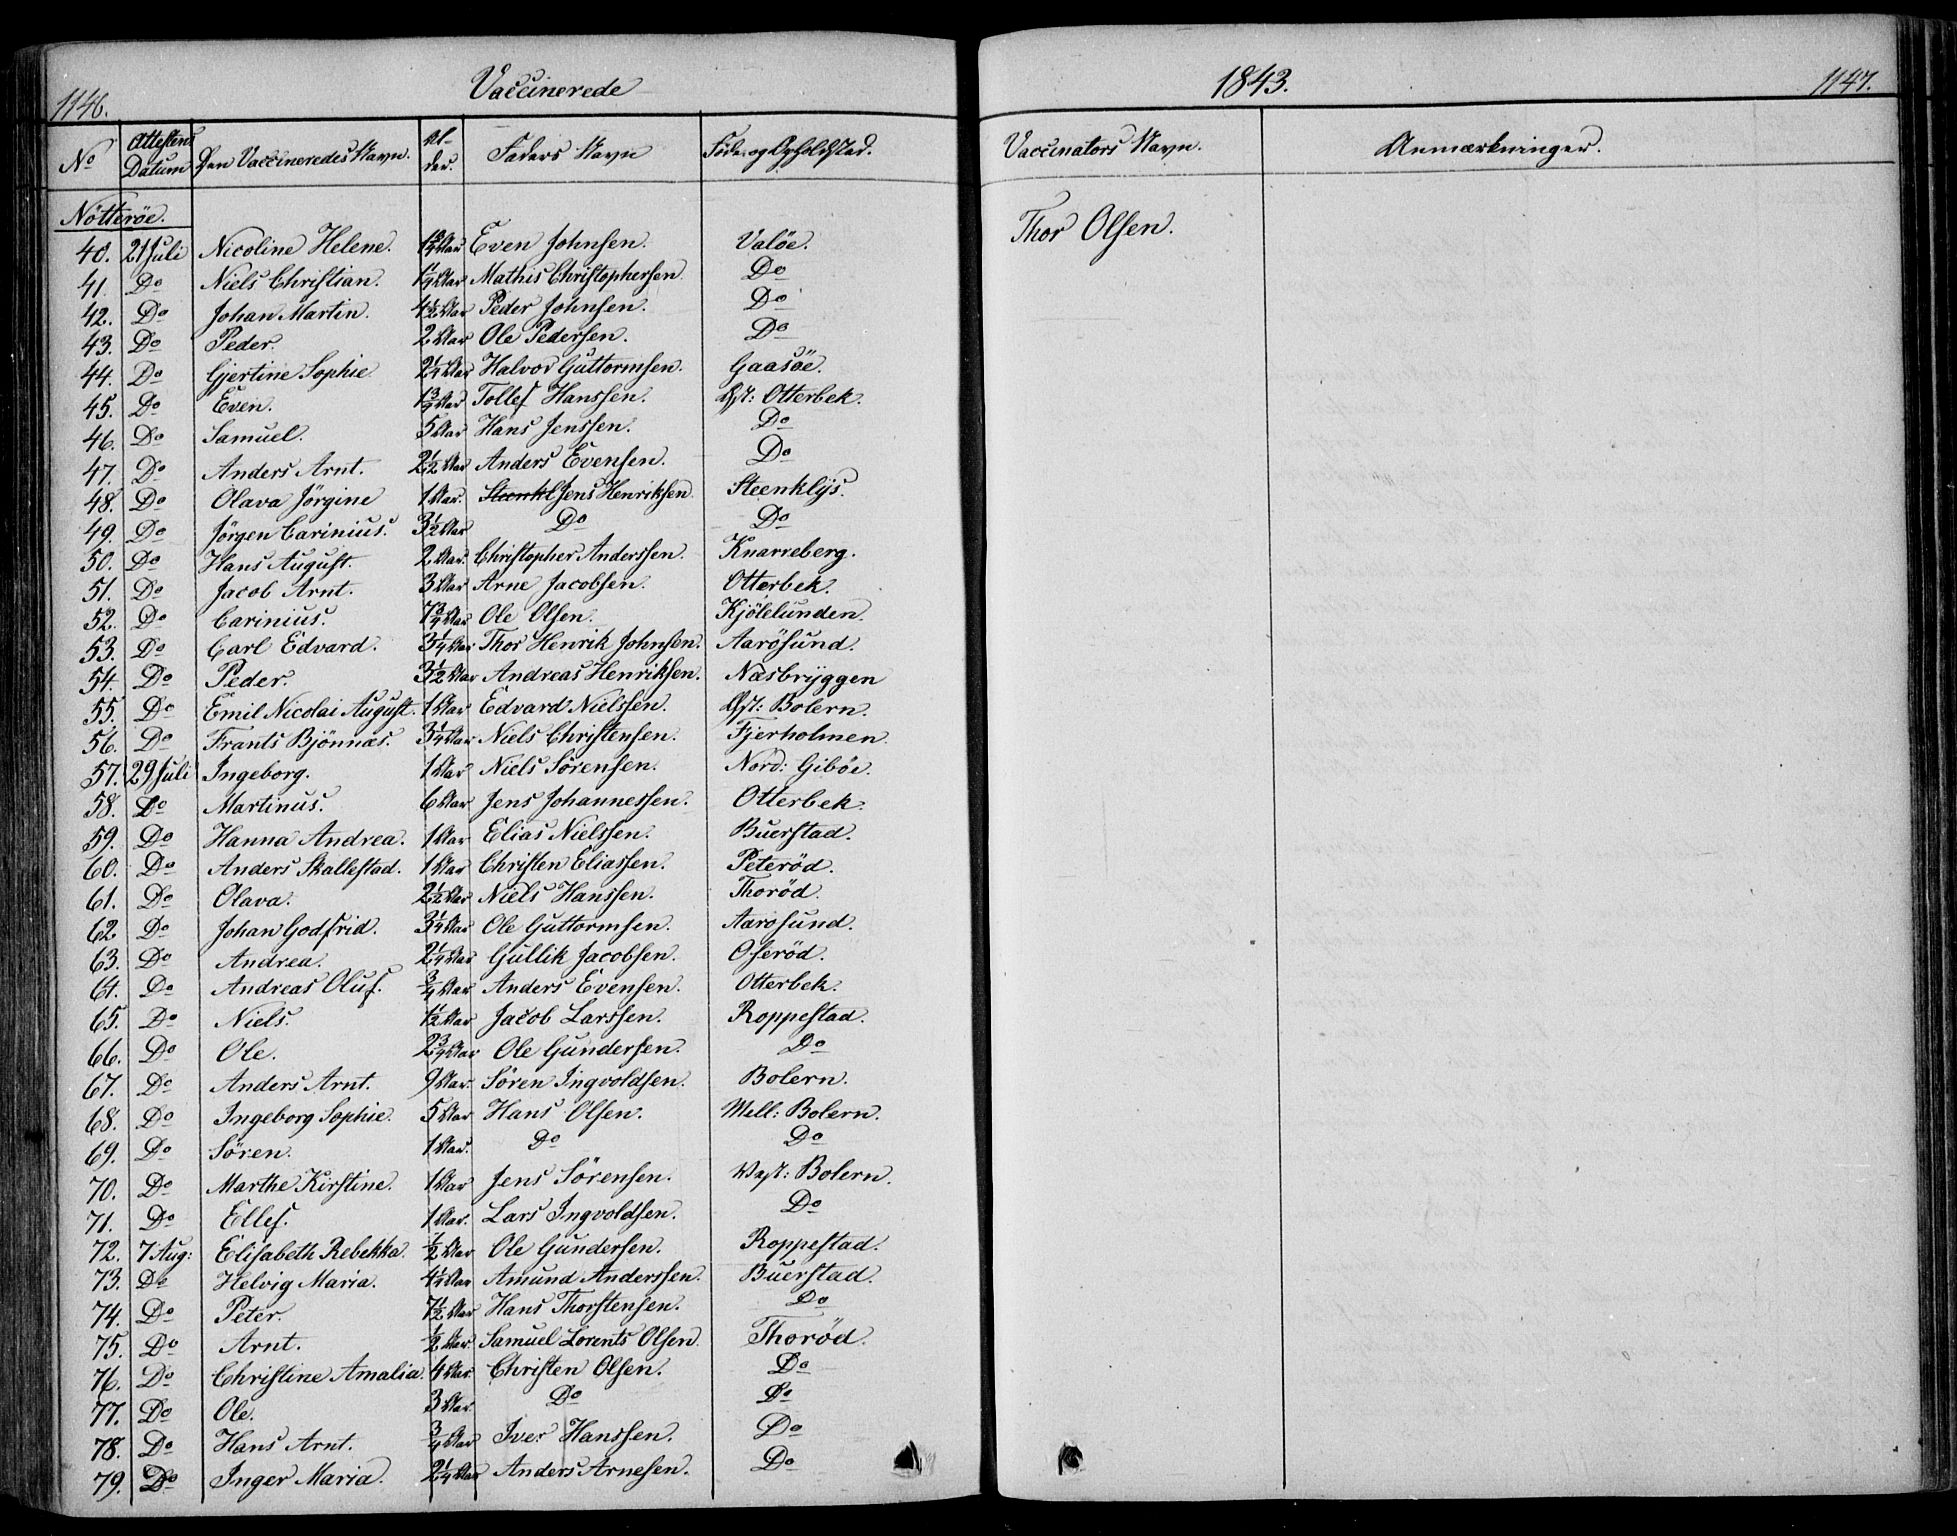 1146. Vaccinerede
No Attestens Datum Den Vaccineredes Navn. Al- der. Faders Navn Føde- og Opholdsted.
Nötteröe.
40. 21 Juli Nicoline Helene. 1 3/4 Aar Even Johnsen. Valöe.
41. Do Niels Christian. 1 1/4 Aar Mathis Christophersen. Do
42. Do Johan Martin. 4 1/2 Aar Peder Johnsen. Do
43. Do Peder 2 Aar Ole Pedersen. Do
44. Do Gjertine Sophie 2 1/4 Aar Halvor Guttormsen. Gaasöe.
45. Do Even. 1 3/4 Aar Tollef Hanssen. Øst: Otterbek.
46. Do Samuel. 5 Aar Hans Jenssen. Do
47. Do Anders Arnt. 2 1/2 Aar Anders Evensen. Do
48. Do Olava Jörgine 1 Aar. Steenkl Jens Henriksen Steenklÿs.
49. Do Jörgen Carinius. 3 1/2 Aar Do Do
50. Do Hans August. 2 Aar. Christopher Anderssen. Knarreberg.
51. Do Jacob Arnt. 3 Aar Arne Jacobsen. Otterbek.
52. Do Carinius. 7 3/4 Aar Ole Olsen. Kjölelunden.
53. Do Carl Edvard. 3 1/4 Aar Thor Henrik Johnsen. Aarösund.
54. Do Peder. 3 1/2 Aar Andreas Henriksen. Næsbrÿggen
55. Do Emil Nicolai August. 1 Aar Edvard Nielssen. Øst: Bolern.
56. Do Frants Bjönnæs. 3 1/4 Aar Niels Christensen. Fjerholmen.
57. 29 Juli Ingeborg. 1 Aar Niels Sörensen. Nord: Giböe.
58. Do Martinus. 6 Aar Jens Johannessen. Otterbek.
59. Do Hanna Andrea. 1 Aar Elias Nielssen. Buerstad.
60. Do Anders Skallestad. 1 Aar Christen Eliassen. Peteröd.
61. Do Olava. 2 1/2 Aar Niels Hanssen. Thoröd.
62. Do Johan Godfrid. 3 1/4 Aar Ole Guttormsen. Aarosund.
63. Do Andrea. 2 1/4 Aar Gullik Jacobsen. Oseröd.
64. Do Andreas Oluf. 3/4 Aar Anders Evensen. Otterbek.
65. Do Niels. 1/2 Aar Jacob Larssen. Roppestad.
66. Do Ole. 2 3/4 Aar Ole Gundersen. Do
67. Do Anders Arnt. 9 Aar. Sören Ingvoldsen. Bolern.
68. Do Ingeborg Sophie. 5 Aar Hans Olsen. Mell: Bolern.
69. Do Sören. 1 Aar. Do Do
70. Do Marthe Kirstine. 1 Aar Jens Sörensen. Vest: Bolern.
71. Do Ellef. 1 Aar. Lars Ingvoldsen. Do
72. 7 Aug: Elisabeth Rebekka. 1/2 Aar Ole Gundersen. Roppestad.
73. Do Helvig Maria. 4 1/4 Aar Amund Anderssen. Buerstad.
74. Do Peter. 7 1/2 Aar Hans Thorstensen. Do
75. Do Arnt. 1/2 Aar. Samuel Lorents Olsen Thoröd.
76. Do Christine Amalia. 4 Aar. Christen Olsen. Do
77. Do Ole. 3 Aar. Do Do
78. Do Hans Arnt. 3/4 Aar Iver Hanssen. Do
79. Do Inger Maria. 2 1/4 Aar Anders Arnesen. Do
1843. 1147.
Vaccinators Navn. Anmærkninger.
Thor Olsen.